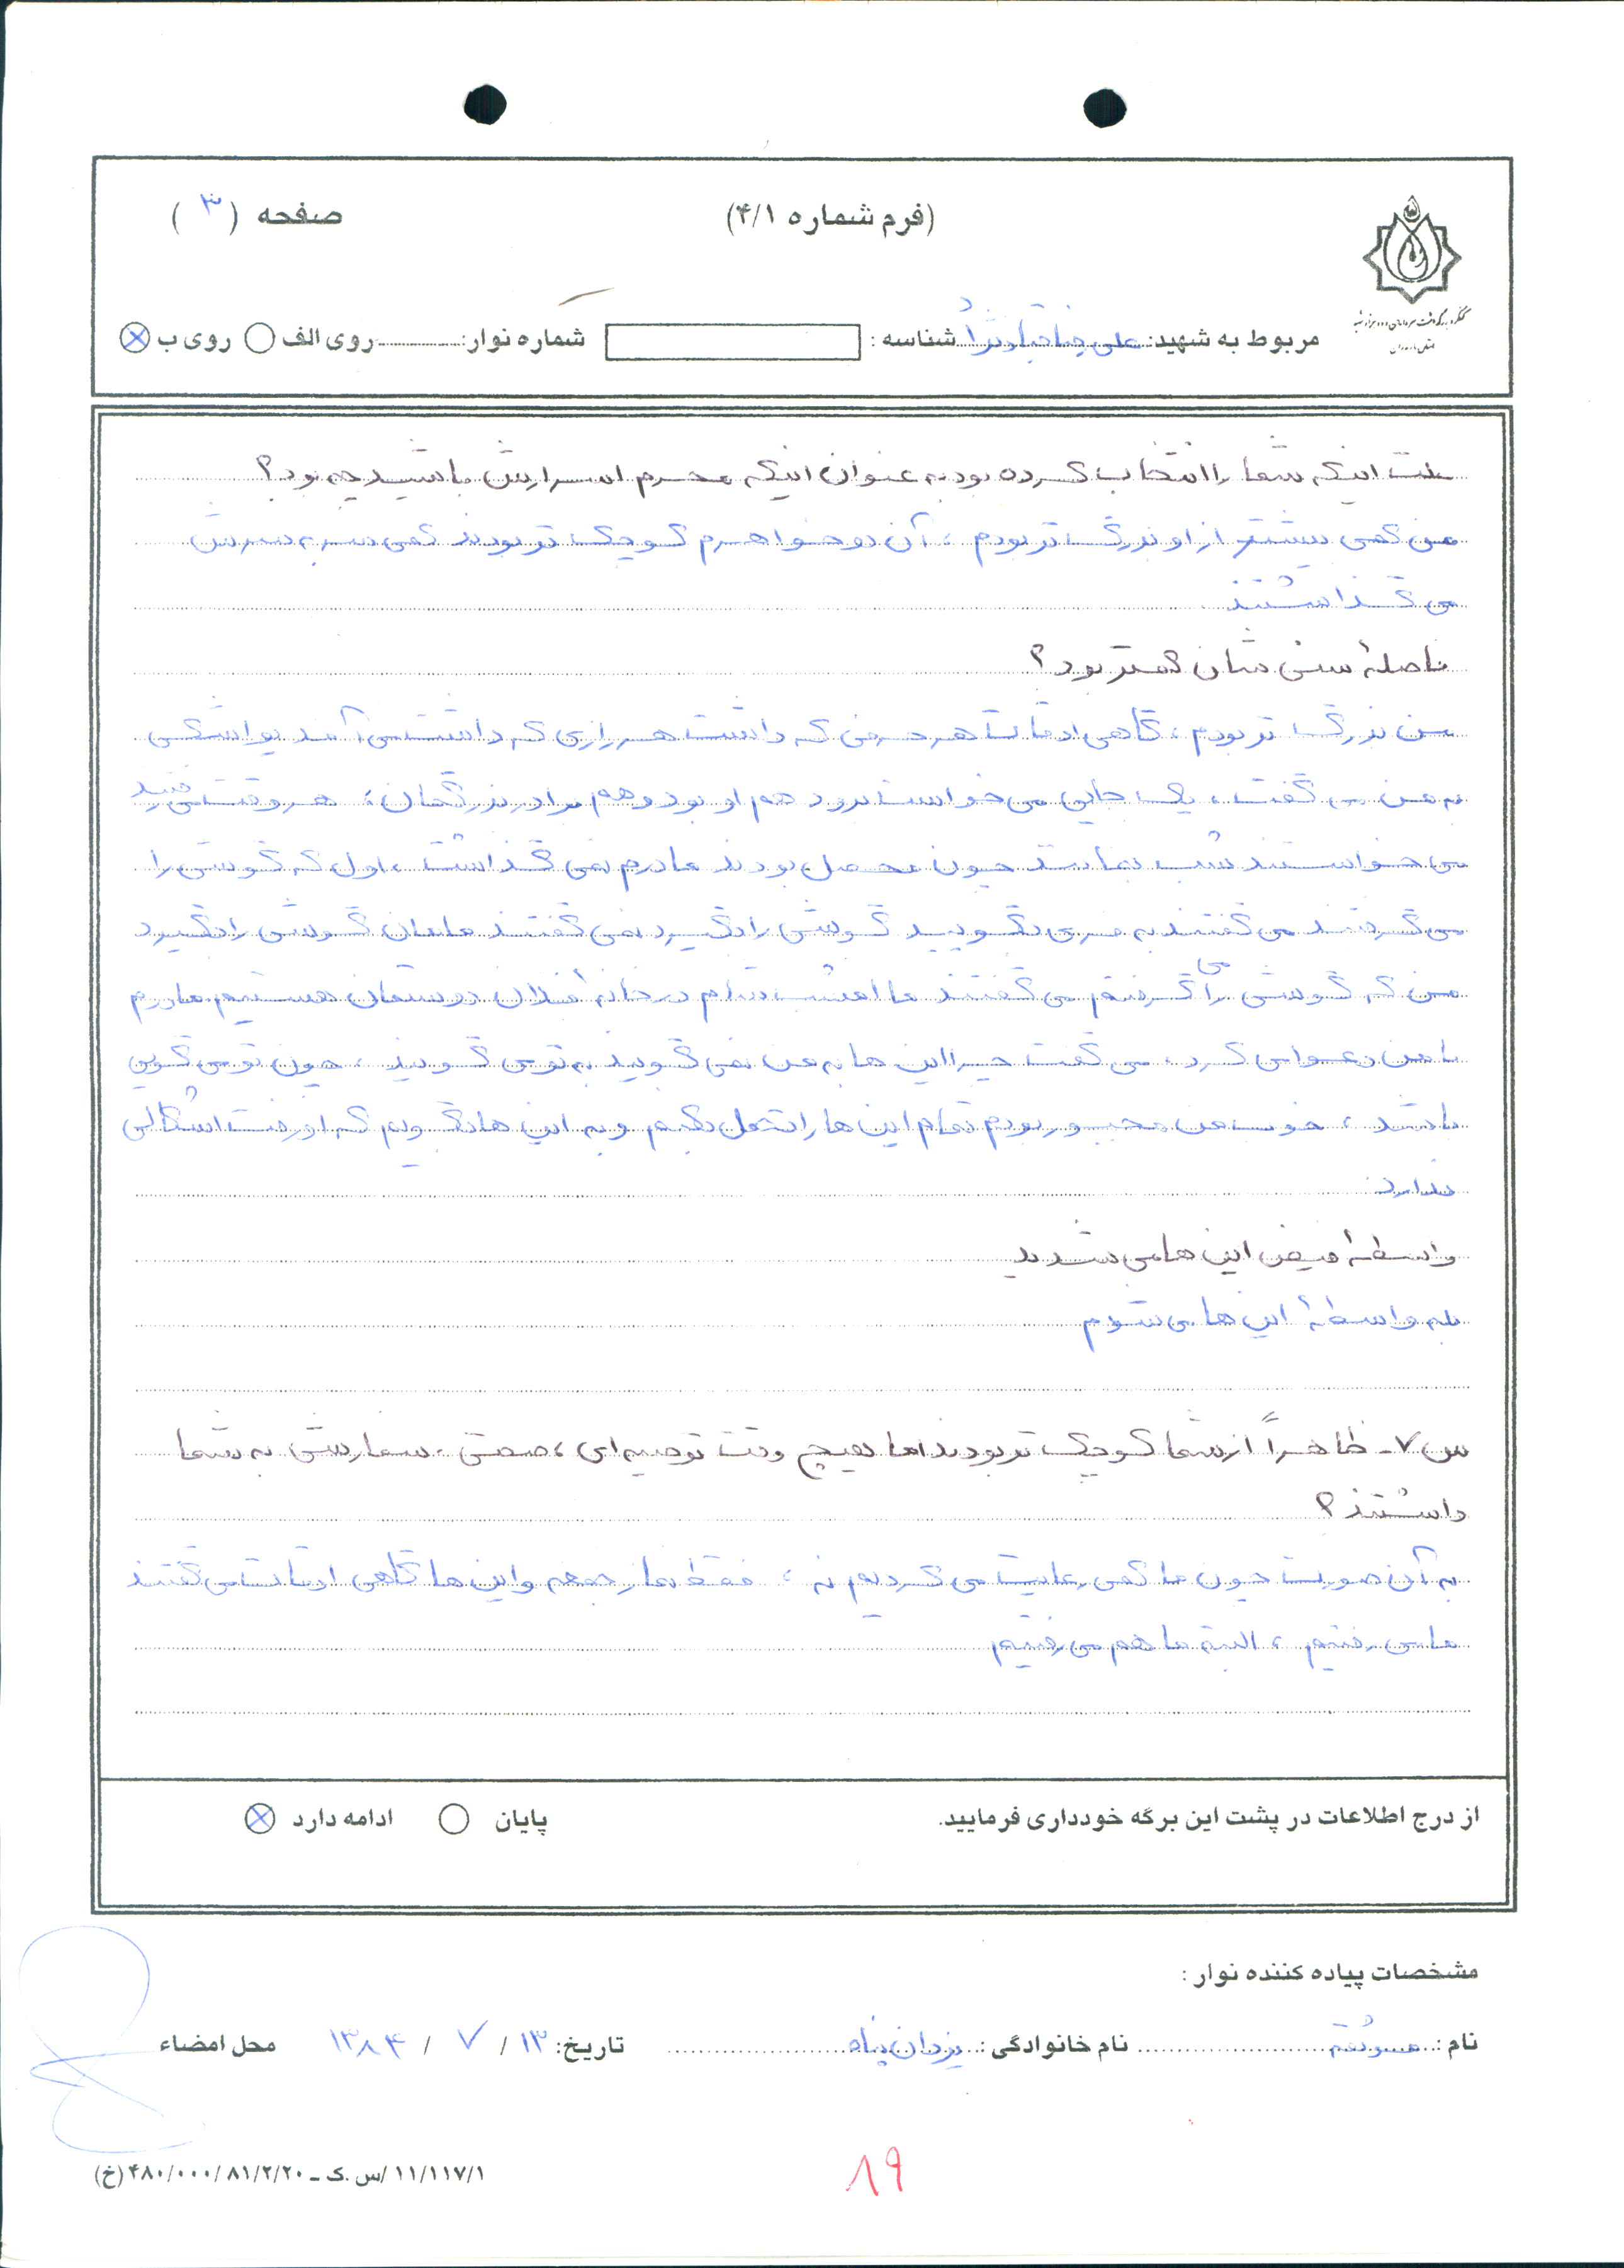 (فرم شماره ۴/۱)
صفحه (۳)
مربوط به شهید: علی رضا قبادنژاد شناسه: شماره نوار: روی الف روی ب
علت اینکه شما را انتخاب کرده بود به عنوان اینکه محرم اسرارش باشید چه بود؟
من کمی بیشتر از او بزرگ تر بودم ، آن دو خواهرم کوچک تر بودند کمی سر به سرش
می گذاشتند
فاصلهٔ سنی شان کمتر بود؟
من بزرگ تر بودم ، گاهی اوقات هر حرفی که داشت هر رازی که داشت می آمد یواشکی
به من می گفت ، یک جایی می خواست برود هم او بود و هم برادر بزرگمان ، هر وقت می رفتند
می خواستند شب بمانند چون محصل بودند مادرم نمی گذاشت ، اول که گوشی را
می گرفتند می گفتند به بگویید گوشی را بگیرد نمی گفتند مامان گوشی را بگیرد
من که گوشی را می گرفتم می گفتند ما امشب شام در خانهٔ فلان دوستمان هستیم مادرم
با من دعوا می کرد ، می گفت چرا این ها به من نمی گویند به تو می گویند ، چون تو می گویی
باشد ، خوب من مجبور بودم تمام این ها را تحمل بکنم و به این ها بگویم که او رفت اشکالی
ندارد
واسطهٔ فیض این ها می شدید
بله واسطهٔ این ها می شوم
س ۷- ظاهراً از شما کوچک تر بودند اما هیچ وقت توصیه ای ، صحبتی ، سفارشی به شما
داشتند؟
به آن صورت چون ما کمی رعایت می کردیم نه ، فقط نماز جمعه و این ها گاهی اوقات می گفتند
ما می رفتیم ، البته ما هم می رفتیم
از درج اطلاعات در پشت این برگه خودداری فرمایید.
پایان ادامه دارد
مشخصات پیاده کننده نوار:
نام: نام خانوادگی: یزدان پناه تاریخ: ۱۳ / ۷ / ۱۳۸۴ محل امضاء
۱۱/۱۱۷/۱ /س.ک - ۴۸۰/۰۰۰/۸۱/۲/۲۰ (خ)
۸۹